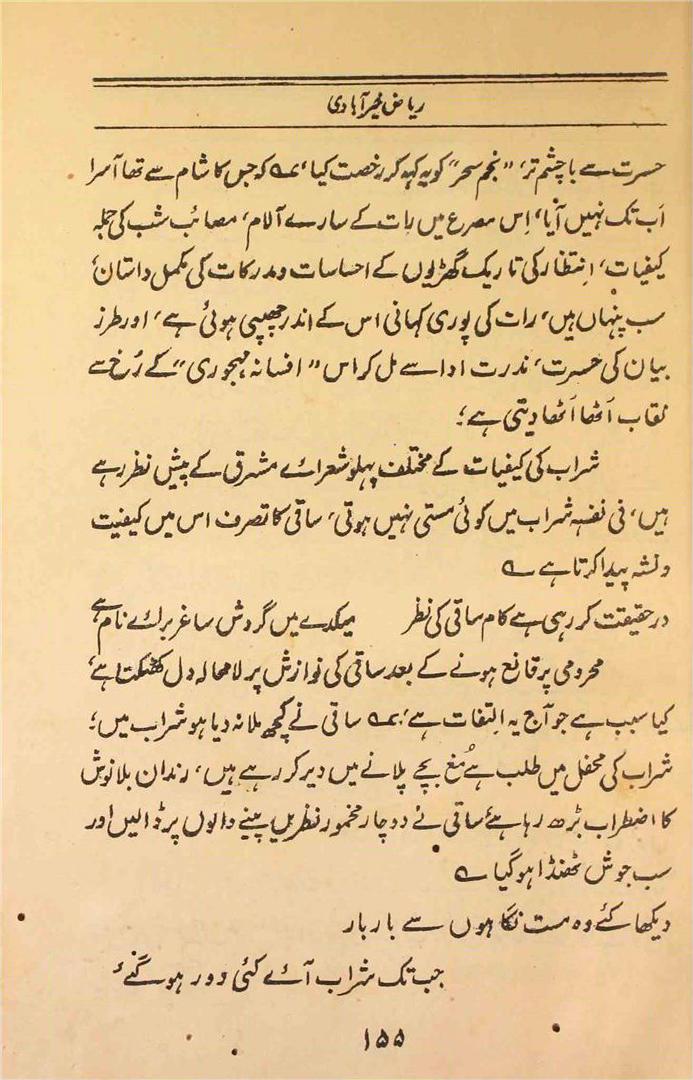 ریاض خیرآبادی
حسرت سے باچشم تر، "نجم سحر" کو یہ کہہ کر رخصت کیا، ؏ کہ جس کا شام سے تھا آسرا
اَب تک نہیں آیا، اِس مصرع میں رات کے سارے آلام، مصائب شب کی جملہ
کیفیات، اِنتظار کی تاریک گھڑیوں کے احساسات ومدرکات کی مکمل داستان،
سب پنہاں ہیں، رات کی پوری کہانی اس کے اندر چھپی ہوئی ہے، اور طرز
بیان کی حسرت، ندرت ادا سے مل کر اس "افسانہ مہجوری" کے رُخ سے
نقاب اُٹھا اُٹھا دیتی ہے؛
شراب کی کیفیات کے مختلف پہلو شعرائے مشرق کے پیش نظر رہے
ہیں، فی نفسہٖ شراب میں کوئی مستی نہیں ہوتی، ساقی کا تصرف اس میں کیفیت
ونشہ پیدا کرتا ہے ؎
درحقیقت کر رہی ہے کام ساقی کی نظر میکدے میں گردش ساغر برائے نام ہے
محرومی پر قانع ہونے کے بعد ساقی کی نوازش پر لامحالہ دل کھٹکتا ہے،
کیا سبب ہے جو آج یہ اِلتفات ہے، ؏ ساقی نے کچھ ملا نہ دیا ہو شراب میں؛
شراب کی محفل میں طلب ہے مُغ بچے پلانے میں دیر کر رہے ہیں، رندان بلانوش
کا اضطراب بڑھ رہا ہے، ساقی نے دوچار مخمور نظریں پینے والوں پر ڈالیں اور
سب جوش ٹھنڈا ہوگیا ؎
دیکھا کئے وہ مست نگاہوں سے بار بار
جب تک شراب آئے کئی دور ہوگئے،
۱۵۵